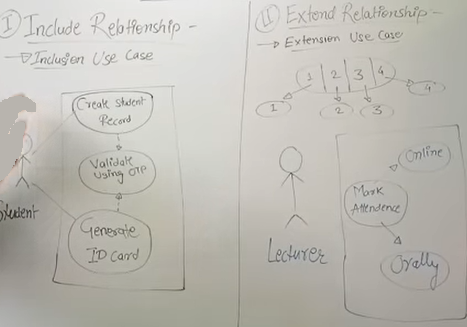 I Include Relationship -
→ Inclusion Use Case
Create Student
Record
Validate
Using OTP
Generate
ID Card
Student
II Extend Relationship -
→ Extension Use Case
1 2 3 4
1 2 3 4
Online
Mark
Attendence
Orally
Lecturer